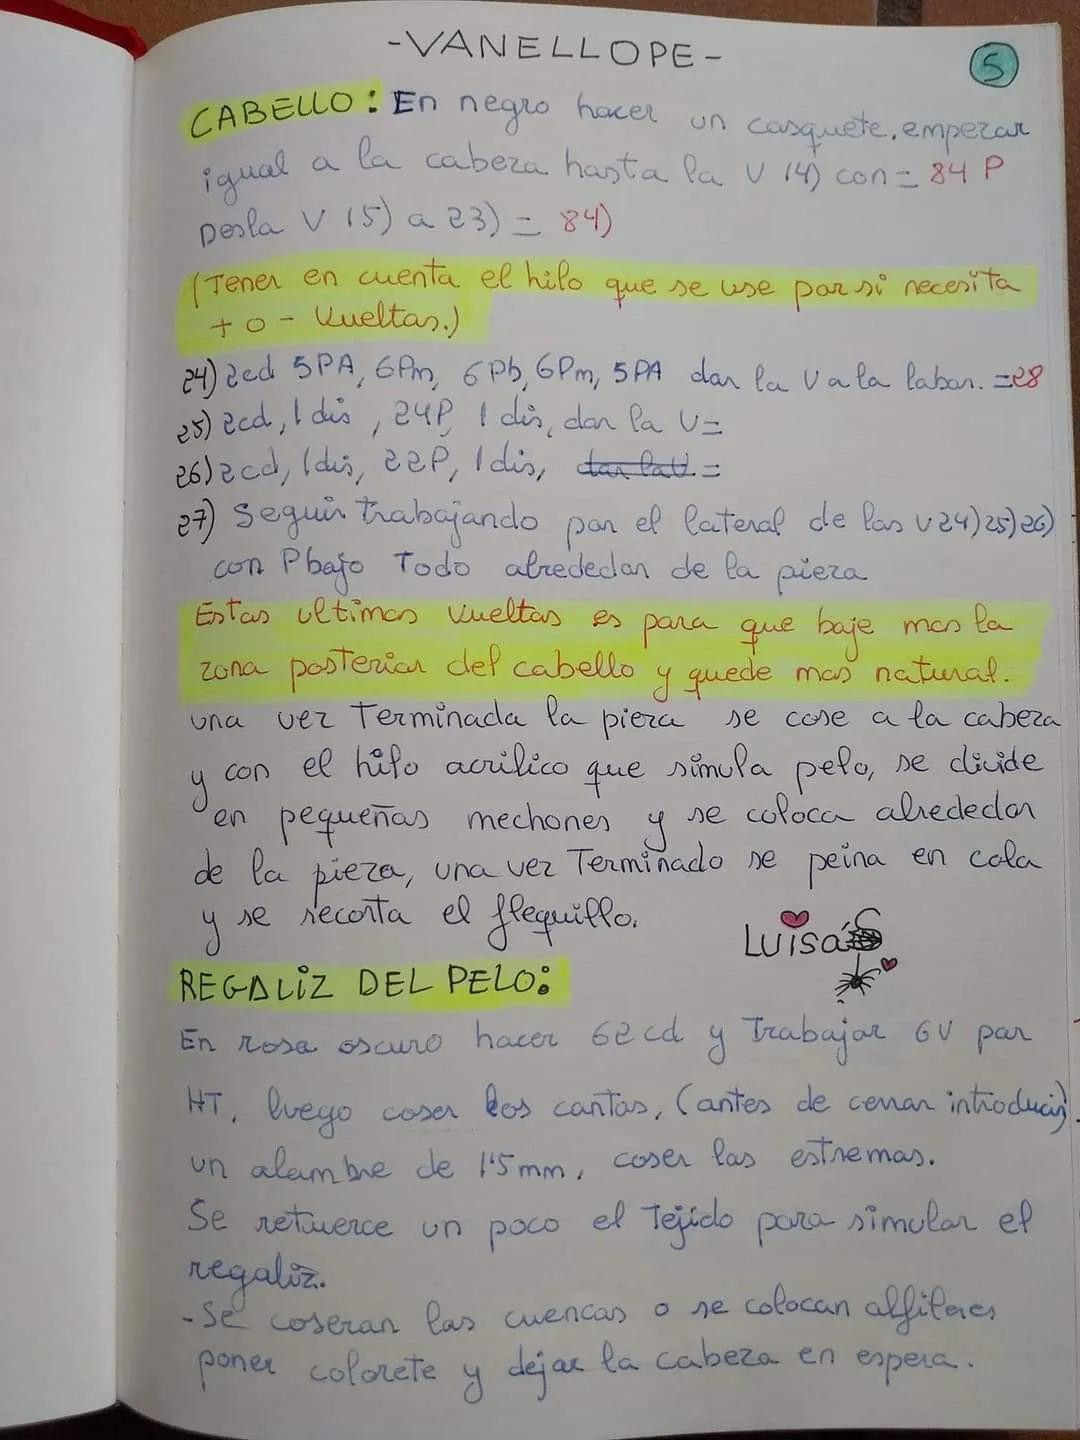 -VANELLOPE-
5
CABELLO: En negro hacer un casquete, empezar
igual a la cabeza hasta la V 14) con = 84 P
Desla V 15) a 23) = 84)
(Tener en cuenta el hilo que se use por si necesita
+ o - Vueltas.)
24) 2cd 5PA, 6Pm, 6Pb, 6Pm, 5PA dar la V a la labor. =28
25) 2cd, 1 dis, 24P, 1 dis, dar la V=
26) 2cd, 1dis, 22P, 1dis, dar la V. =
27) Seguir trabajando por el lateral de las V24) 25) 26)
con Pbajo Todo alrededor de la pieza
Estas ultimas vueltas es para que baje mas la
zona posterior del cabello y quede mas natural.
una vez Terminada la pieza se cose a la cabeza
y con el hilo acrilico que simula pelo, se divide
en pequeñas mechones y se coloca alrededor
de la pieza, una vez Terminado se peina en cola
y se recorta el flequillo.
Luisa's
REGALIZ DEL PELO:
En rosa oscuro hacer 62cd y Trabajar 6V por
HT, luego coser los cantos, (antes de cerrar introducir)
un alambre de 1'5mm, coser los estremos.
Se retuerce un poco el Tejido para simular el
regaliz.
-Se coseran las cuencas o se colocan alfileres
poner colorete y dejar la cabeza en espera.